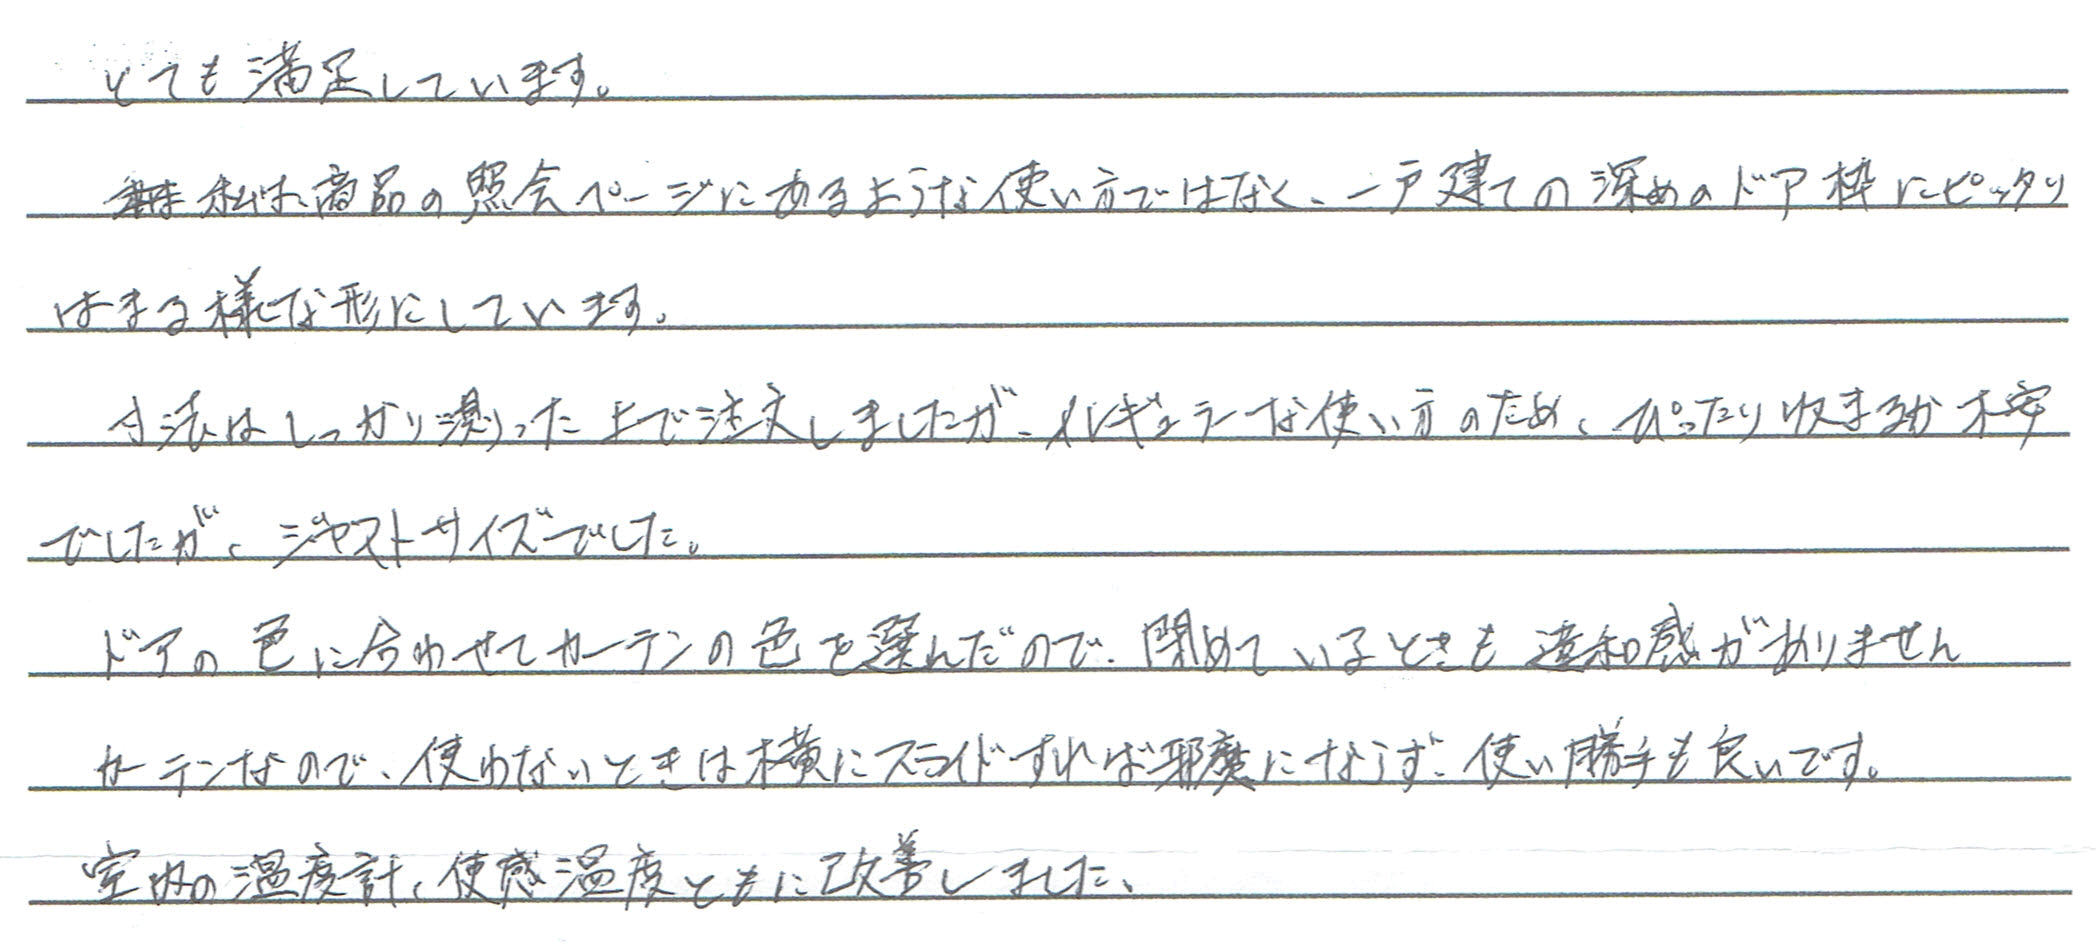 とても満足しています。
私は、商品の照会ページにあるような使い方ではなく、一戸建ての深めのドア枠にピッタリ
はまる様な形にしています。
寸法はしっかり測った上で注文しましたが、イレギュラーな使い方のため、ぴったり収まるか不安
でしたが、ジャストサイズでした。
ドアの色に合わせてカーテンの色を選んだので、閉めているときも違和感がありません
カーテンなので、使わないときは横にスライドすれば邪魔にならず、使い勝手も良いです。
室内の温度計、使感温度ともに改善しました、